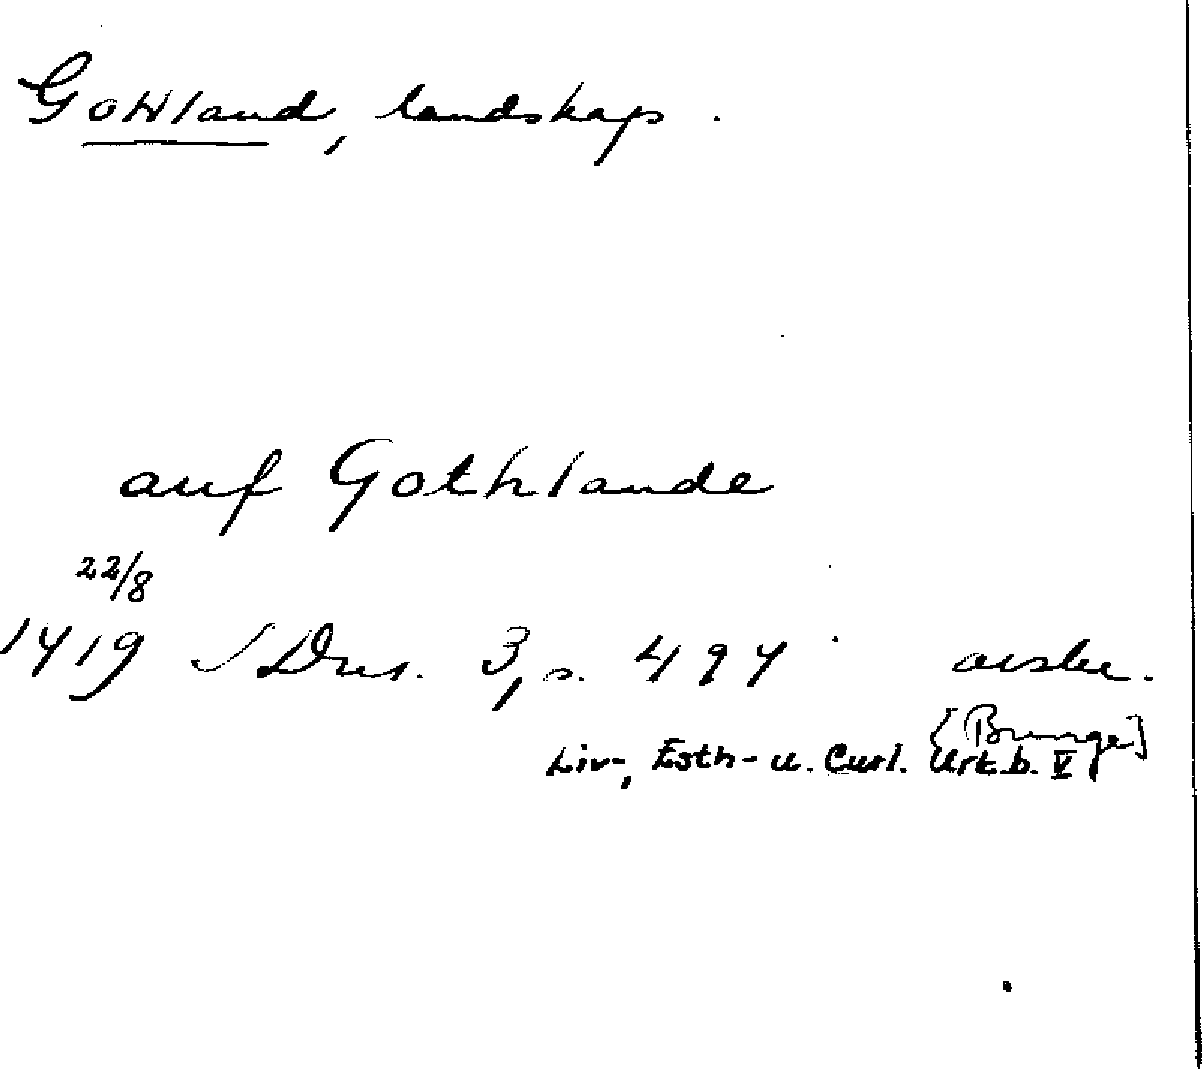 Gottland, landskap.
auf Gothlande
22/8
1419 SDns. 3, s. 494 avskr.
[Bunge]
Liv-, Esth- u. Curl. Urk.b. V